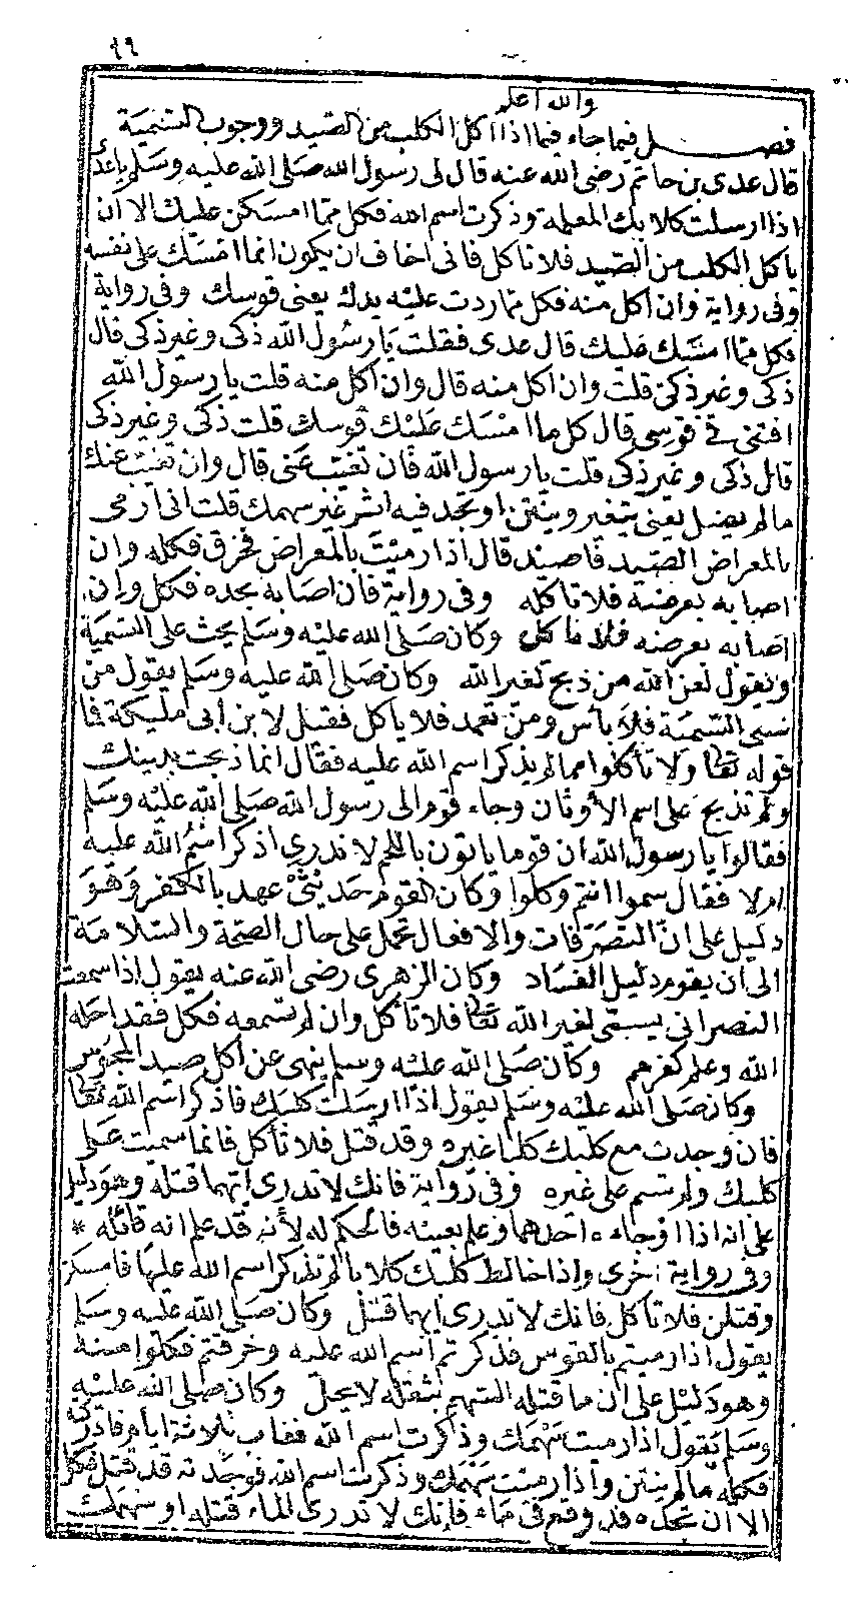 ٩٩
والله أعلم
فصل فيما جاء فيما اذا اكل الكلب من الصيد ووجوب التسمية
قال عدى بن حاتم رضى الله عنه قال لى رسول الله صلى الله عليه وسلم ياعدى
اذا ارسلت كلابك المعلمة وذكرت اسم الله فكل مما امسكن عليك الا ان
ياكل الكلب من الصيد فلا تاكل فانى اخاف ان يكون انما امسك على نفسه
وفى رواية وان اكل منه فكل مما ردت عليه يدك يعنى قوسك وفى رواية
فكل مما امسك عليك قال عدى فقلت يا رسول الله ذكى وغير ذكى قال
ذكى وغير ذكى قلت وان اكل منه قال وان اكل منه قلت يا رسول الله
افتنى فى قوسى قال كل ما امسك عليك قوسك قلت ذكى وغير ذكى
قال ذكى وغير ذكى قلت يا رسول الله فان تغيب عنى قال وان تغيب عنك
مالم يصل يعنى يتغير وينتن او تجد فيه اثر غير سهمك قلت انى ارمى
بالمعراض الصيد فاصيد قال اذا رميت بالمعراض فخرق فكله وان
اصابه بعرضه فلا تاكله وفى رواية فان اصابه بحده فكل وان
اصابه بعرضه فلا تاكل وكان صلى الله عليه وسلم يحث على التسمية
ويقول لعن الله من ذبح لغير الله وكان صلى الله عليه وسلم يقول من
نسى التسمية فلا بأس ومن تعمد فلا ياكل فقيل لابن ابى مليكة فما
قوله تعالى ولا تأكلوا مما لم يذكر اسم الله عليه فقال انما ذبحت بدينك
ولم تذبح على اسم الأوثان وجاء قوم الى رسول الله صلى الله عليه وسلم
فقالوا يا رسول الله ان قوما ياتون باللحم لا ندرى اذكر اسم الله عليه
ام لا فقال سموا انتم وكلوا وكان القوم حديثى عهد بالكفر وهو
دليل على ان التصرفات والافعال تحمل على حال الصحة والسلامة
الى ان يقوم دليل الفساد وكان الزهرى رضى الله عنه يقول اذا سمعت
النصرانى يسمى لغير الله تعالى فلا تأكل وان لم تسمعه فكل فقد احله
الله وعلم كفرهم وكان صلى الله عليه وسلم ينهى عن اكل صيد المجوس
وكان صلى الله عليه وسلم يقول اذا ارسلت كلبك فاذكر اسم الله تعالى
فان وجدت مع كلبك كلبا غيره وقد قتل فلا تأكل فانما سميت على
كلبك ولم تسم على غيره وفى رواية فانك لا تدرى ايهما قتله وهو دليل
على انه اذا اوجاءه احدهما وعلم بعينه فالحكم له لأنه قد علم انه قاتله *
وفى رواية اخرى واذا خالط كلبك كلابا لم تذكر اسم الله عليها فامسكن
وقتلن فلا تأكل فانك لا تدرى ايهما قتل وكان صلى الله عليه وسلم
يقول اذا رميتم بالقوس فذكرتم اسم الله عليه وخرقتم فكلوا منه
وهو دليل على ان ما قتله السهم بثقله لا يحل وكان صلى الله عليه
وسلم يقول اذا رميت سهمك وذكرت اسم الله فغاب ثلاثة ايام فادركته
فكله مالم ينتن واذا رميت سهمك وذكرت اسم الله فوجدته قد قتل فكل
الا ان تجده قد وقع فى ماء فإنك لا تدرى الماء قتله او سهمك